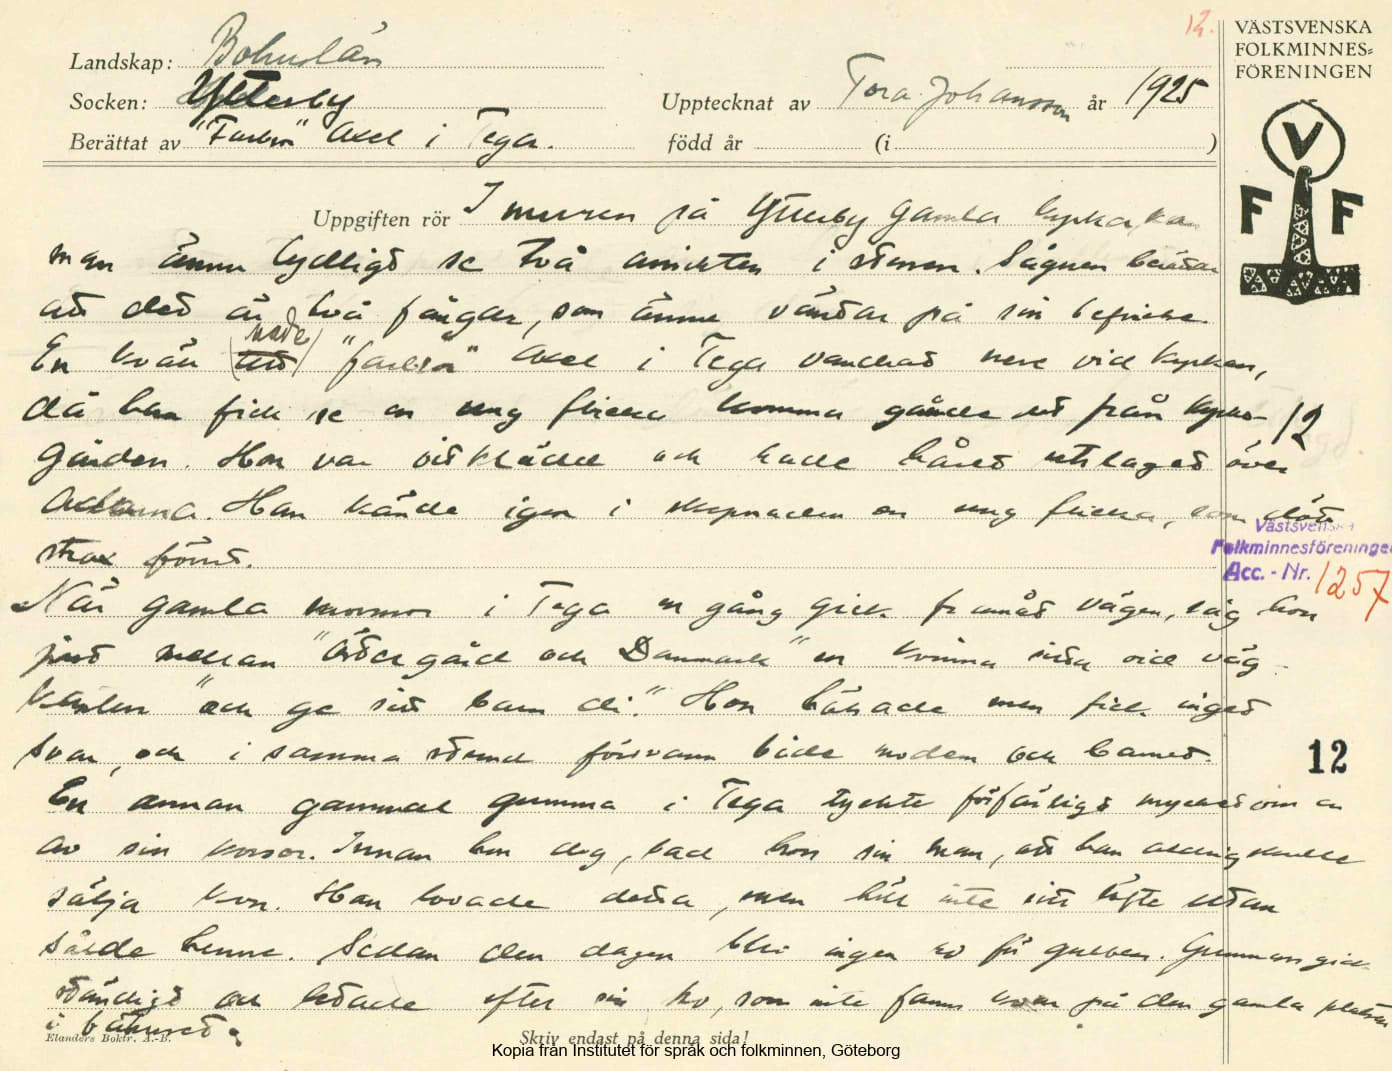 12.
Landskap: Bohuslän
Socken: Ytterby
Upptecknat av Tora Johansson år 1925
Berättat av "Farbror" Axel i Tega.
född år (i )
VÄSTSVENSKA
FOLKMINNES-
FÖRENINGEN
V
F F
Uppgiften rör I muren på Ytterby gamla kyrka, kan
man ännu tydligt se två ansikten i stenen. Sägnen berättar
att det är två fångar, som ännu väntar på sin befrielse.
En kväll (att) hade "farbror" Axel i Tega vandrat nere vid kyrkan,
då han fick se en ung flicka komma gående ut från kyrko-
gården. Hon var vitklädd och hade håret utslaget över
axlarna. Han kände igen i skepnaden en ung flicka, som dött
strax förut.
När gamla mormor i Tega en gång gick framåt vägen, såg hon
just mellan "Östergård och Danmark" en kvinna sitta vid väg-
kanten "och ge sitt barn di." Hon hälsade men fick inget
svar, och i samma stund försvann både modern och barnet.
En annan gammal gumma i Tega tyckte förfärligt mycket om en
av sin kossor. Innan hon dog, bad hon sin man, att han aldrig skulle
sälja kon. Han lovade detta, men höll inte sitt löfte utan
sålde henne. Sedan den dagen blev ingen ro för gubben. Gumman gick
ständigt och letade efter sin ko, som inte fanns kvar på den gamla platsen
i båset.
12
Västsvenska
Folkminnesföreningen
Acc. - Nr. 1257
12
Elanders Boktr. A.-B.
Skriv endast på denna sida!
Kopia från Institutet för språk och folkminnen, Göteborg